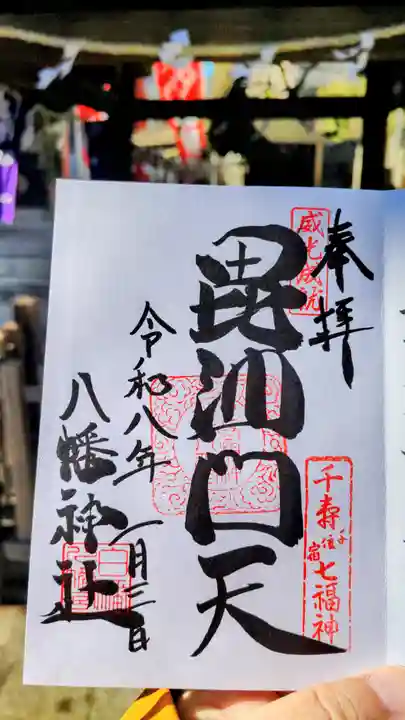 奉拝
威光成就
千寿七福神
千住宿
毘沙門天
令和八年一月三日
八幡神社